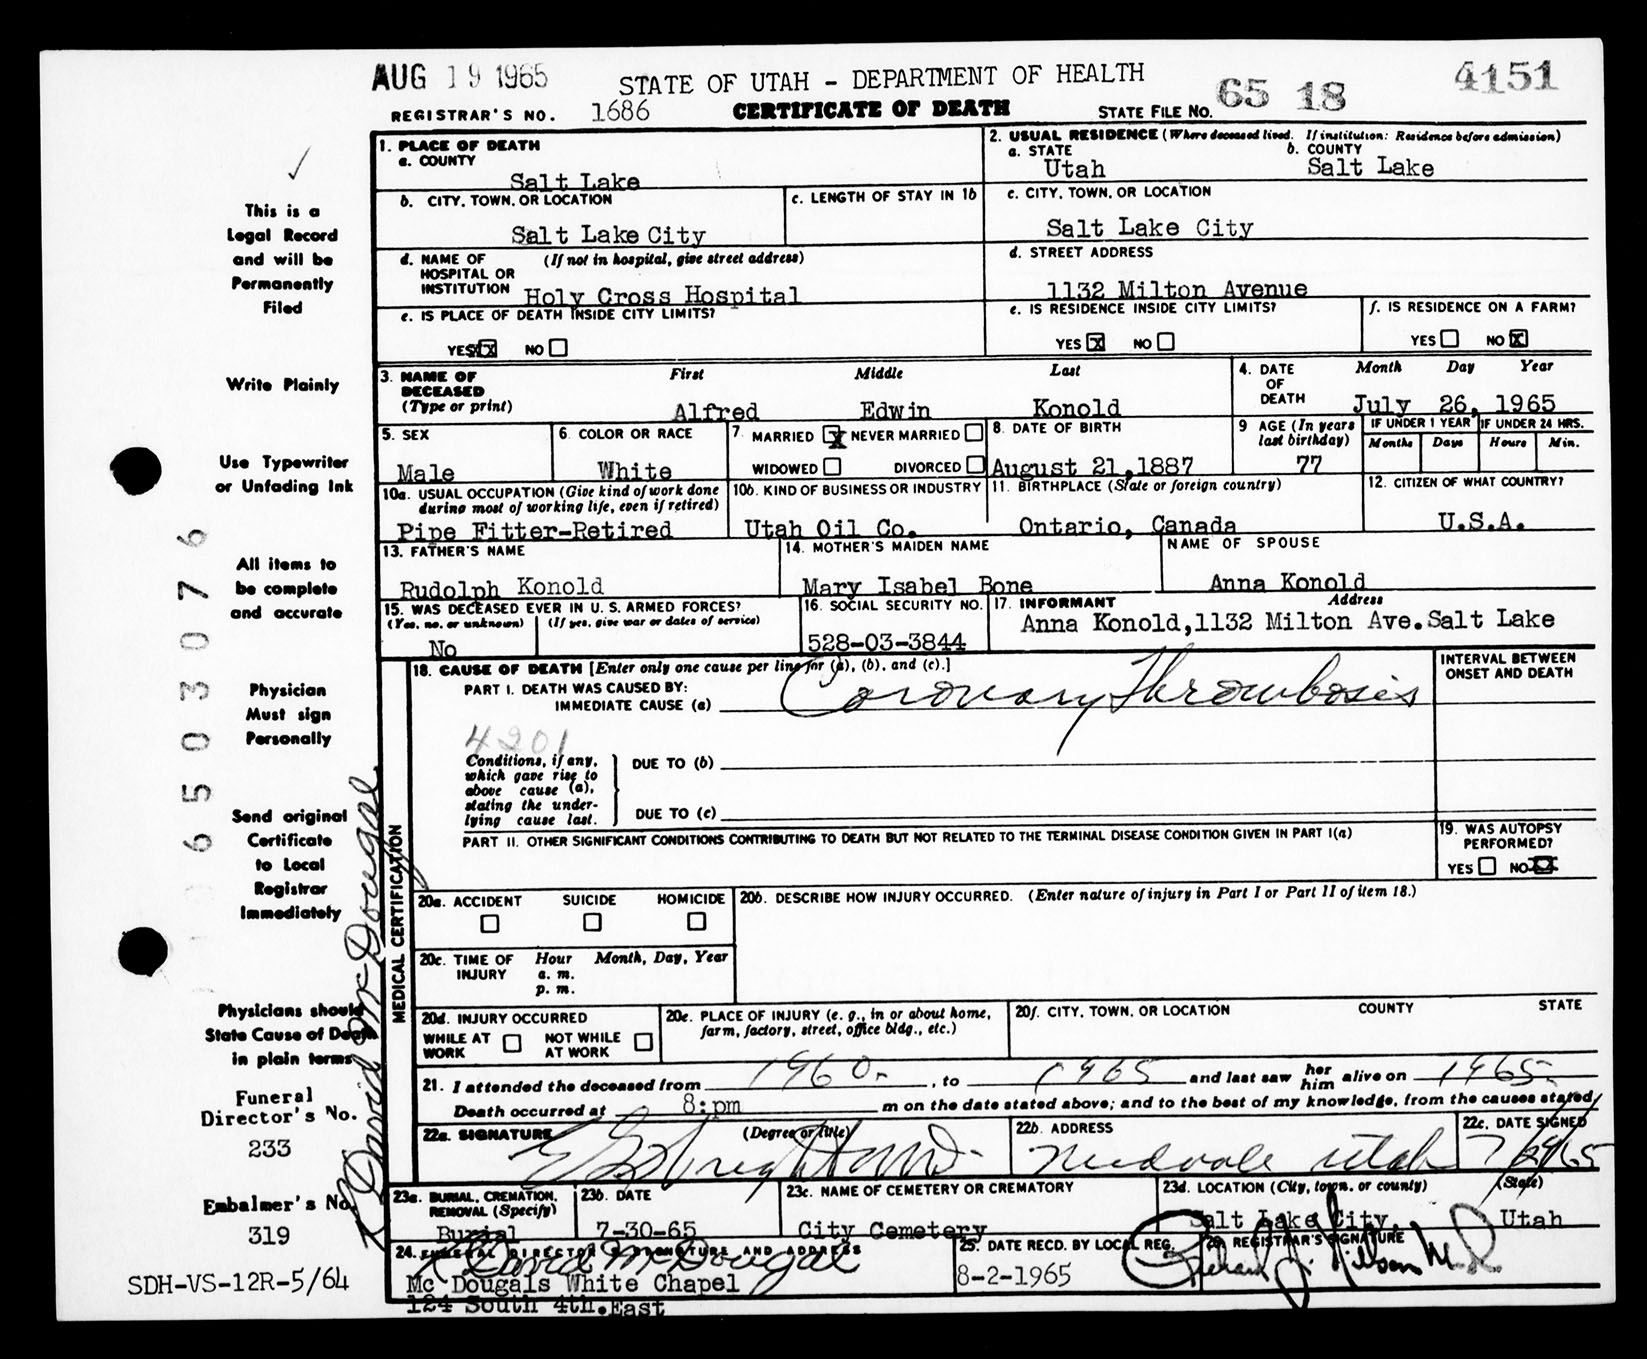 AUG 19 1965
STATE OF UTAH - DEPARTMENT OF HEALTH
65 18 4151
REGISTRAR'S NO. 1686 CERTIFICATE OF DEATH STATE FILE NO.
1. PLACE OF DEATH
a. COUNTY
Salt Lake
2. USUAL RESIDENCE (Where deceased lived. If institution: Residence before admission)
a. STATE b. COUNTY
Utah Salt Lake
b. CITY, TOWN, OR LOCATION
Salt Lake City
c. LENGTH OF STAY IN 1b
c. CITY, TOWN, OR LOCATION
Salt Lake City
d. NAME OF (If not in hospital, give street address)
HOSPITAL OR
INSTITUTION Holy Cross Hospital
d. STREET ADDRESS
1132 Milton Avenue
e. IS PLACE OF DEATH INSIDE CITY LIMITS?
YES X NO
e. IS RESIDENCE INSIDE CITY LIMITS?
YES X NO
f. IS RESIDENCE ON A FARM?
YES NO X
3. NAME OF First Middle Last
DECEASED
(Type or print) Alfred Edwin Konold
4. DATE Month Day Year
OF
DEATH July 26, 1965
5. SEX
Male
6. COLOR OR RACE
White
7. MARRIED X NEVER MARRIED
WIDOWED DIVORCED
8. DATE OF BIRTH
August 21,1887
9 AGE (In years
last birthday)
77
IF UNDER 1 YEAR IF UNDER 24 HRS.
Months Days Hours Min.
10a. USUAL OCCUPATION (Give kind of work done
during most of working life, even if retired)
Pipe Fitter-Retired
10b. KIND OF BUSINESS OR INDUSTRY
Utah Oil Co.
11. BIRTHPLACE (State or foreign country)
Ontario, Canada
12. CITIZEN OF WHAT COUNTRY?
U.S.A.
13. FATHER'S NAME
Rudolph Konold
14. MOTHER'S MAIDEN NAME
Mary Isabel Bone
NAME OF SPOUSE
Anna Konold
15. WAS DECEASED EVER IN U. S. ARMED FORCES?
(Yes, no, or unknown) (If yes, give war or dates of service)
No
16. SOCIAL SECURITY NO.
528-03-3844
17. INFORMANT Address
Anna Konold,1132 Milton Ave.Salt Lake
18. CAUSE OF DEATH [Enter only one cause per line for (a), (b), and (c).]
PART I. DEATH WAS CAUSED BY:
IMMEDIATE CAUSE (a) Coronary Thrombosis
INTERVAL BETWEEN
ONSET AND DEATH
4201
Conditions, if any,
which gave rise to
above cause (a),
stating the under-
lying cause last.
DUE TO (b)
DUE TO (c)
PART II. OTHER SIGNIFICANT CONDITIONS CONTRIBUTING TO DEATH BUT NOT RELATED TO THE TERMINAL DISEASE CONDITION GIVEN IN PART I(a)
19. WAS AUTOPSY
PERFORMED?
YES NO X
MEDICAL CERTIFICATION
20a. ACCIDENT SUICIDE HOMICIDE
20b. DESCRIBE HOW INJURY OCCURRED. (Enter nature of injury in Part I or Part II of item 18.)
20c. TIME OF Hour Month, Day, Year
INJURY a. m.
p. m.
20d. INJURY OCCURRED
WHILE AT NOT WHILE
WORK AT WORK
20e. PLACE OF INJURY (e. g., in or about home,
farm, factory, street, office bldg., etc.)
20f. CITY, TOWN, OR LOCATION COUNTY STATE
21. I attended the deceased from 1960 , to 1965 and last saw her him alive on 1965
Death occurred at 8:pm m on the date stated above; and to the best of my knowledge, from the causes stated
22a. SIGNATURE (Degree or title)
22b. ADDRESS
Midvale Utah
22c. DATE SIGNED
7/29/65
23a. BURIAL, CREMATION,
REMOVAL (Specify)
Burial
23b. DATE
7-30-65
23c. NAME OF CEMETERY OR CREMATORY
City Cemetery
23d. LOCATION (City, town, or county) (State)
Salt Lake City, Utah
24. FUNERAL DIRECTOR'S SIGNATURE AND ADDRESS
David McDougal
Mc Dougals White Chapel
124 South 4th.East
25. DATE RECD. BY LOCAL REG.
8-2-1965
26. REGISTRAR'S SIGNATURE
This is a
Legal Record
and will be
Permanently
Filed
Write Plainly
Use Typewriter
or Unfading Ink
All items to
be complete
and accurate
Physician
Must sign
Personally
Send original
Certificate
to Local
Registrar
Immediately
Physicians should
State Cause of Death
in plain terms
Funeral
Director's No.
233
Embalmer's No.
319
SDH-VS-12R-5/64
6503076
David McDougal